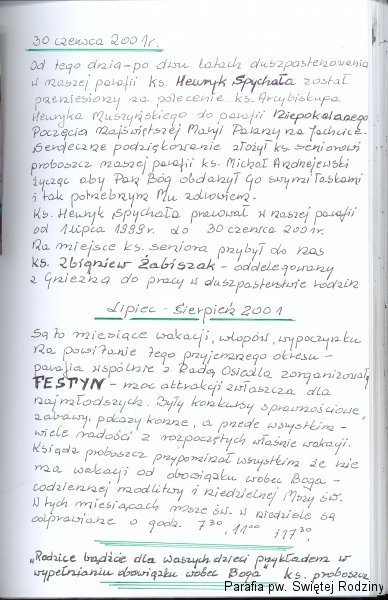 30 czerwca 2001r.
Od tego dnia - po dwu latach duszpasterzowania
w naszej parafii ks. Henryk Spychała został
przeniesiony na polecenie ks. Arcybiskupa
Henryka Muszyńskiego do parafii Niepokalanego
Poczęcia Najświętszej Maryi Panny na Jachcice.
Serdeczne podziękowanie złożył ks. seniorowi
proboszcz naszej parafii ks. Michał Andrzejewski
życząc aby Pan Bóg obdarzył Go swymi łaskami
i tak potrzebnym Mu zdrowiem.
Ks. Henryk Spychała pracował w naszej parafii
od 1 lipca 1999r. do 30 czerwca 2001r.
Na miejsce ks. seniora przybył do nas
ks. Zbigniew Żabiszak - oddelegowany
z Gniezna do pracy w duszpasterstwie rodzin
Lipiec - Sierpień 2001
Są to miesiące wakacji, urlopów, wypoczynku
Na powitanie tego przyjemnego okresu -
parafia wspólnie z Radą Osiedla zorganizowały
FESTYN - moc atrakcji zwłaszcza dla
najmłodszych. Były konkursy sprawnościowe,
zabawy, pokazy konne, a przede wszystkim -
wiele radości z rozpoczętych właśnie wakacji.
Ksiądz proboszcz przypominał wszystkim że nie
ma wakacji od obowiązku wobec Boga -
codziennej modlitwy i niedzielnej Mszy św.
W tych miesiącach msze św. w niedziele są
odprawiane o godz. 7³⁰, 11⁰⁰ i 17³⁰.
„Rodzice bądźcie dla waszych dzieci przykładem w
wypełnianiu obowiązku wobec Boga" ks. proboszcz
Parafia pw. Świętej Rodziny